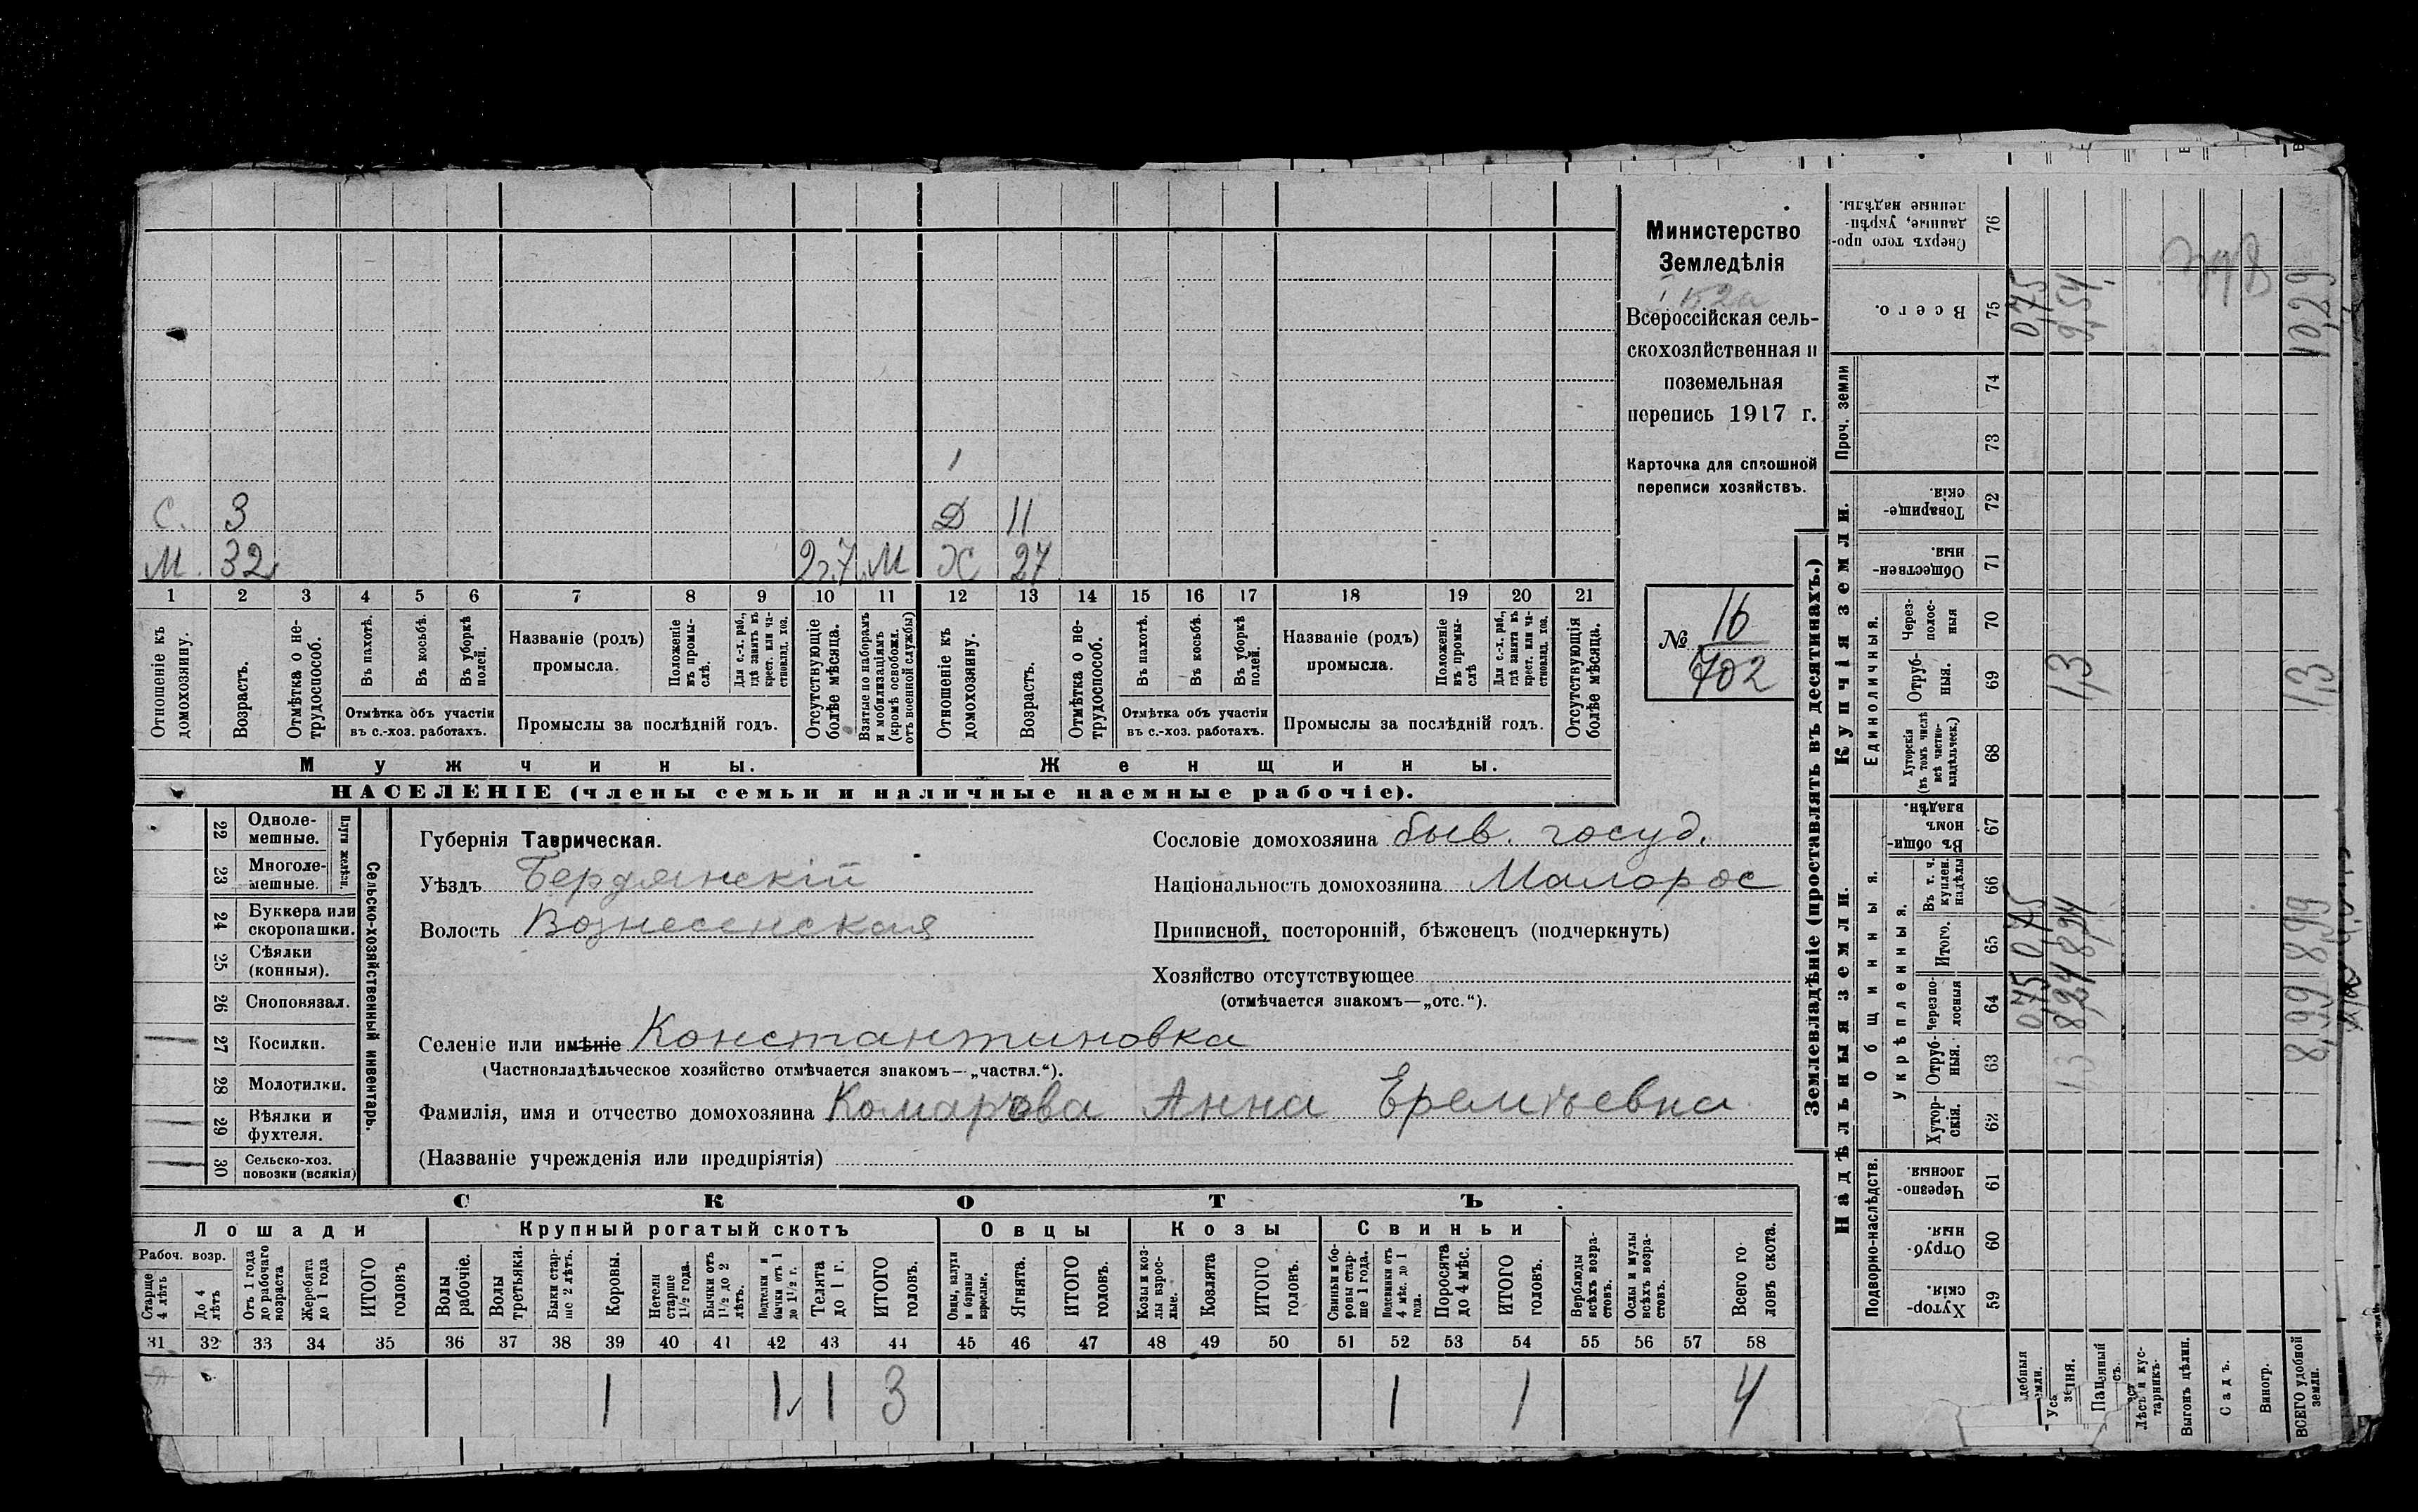 Министерство
Земледѣлія
Всероссійская сель-
скохозяйственная и
поземельная
перепись 1917 г.
Карточка для сплошной
переписи хозяйствъ.
№ 16
702
С. 3
Д 11
М. 32 2г.7 М Ж 27
1 2 3 4 5 6 7 8 9 10 11 12 13 14 15 16 17 18 19 20 21
Отношеніе къ домохозяину.
Возрастъ.
Отмѣтка о не-трудоспособ.
Въ пахотѣ.
Въ косьбѣ.
Въ уборкѣ полей.
Отмѣтка объ участіи
въ с.-хоз. работахъ.
Названіе (родъ)
промысла.
Положеніе въ промы-слѣ.
Для с.-х. раб., гдѣ занятъ въ крест. или ча-стновлад. хоз.
Промыслы за послѣдній годъ.
Отсутствующіе болѣе мѣсяца.
Взятые по наборамъ и мобилизаціямъ (кромѣ освобожд. отъ военной службы)
Отношеніе къ домохозяину.
Возрастъ.
Отмѣтка о не-трудоспособ.
Въ пахотѣ.
Въ косьбѣ.
Въ уборкѣ полей.
Отмѣтка объ участіи
въ с.-хоз. работахъ.
Названіе (родъ)
промысла.
Положеніе въ промы-слѣ
Для с.-х. раб., гдѣ занята въ крест. или ча-стновлад. хоз.
Промыслы за послѣдній годъ.
Отсутствующія болѣе мѣсяца.
Мужчины.
Женщины.
НАСЕЛЕНІЕ (члены семьи и наличные наемные рабочіе).
22 Одноле-мешные.
23 Многоле-мешные.
Плуги желѣзн.
24 Буккера или скоропашки.
25 Сѣялки (конныя).
26 Сноповязал.
27 Косилки.
28 Молотилки.
29 Вѣялки и фухтеля.
30 Сельско-хоз. повозки (всякія)
Сельско-хозяйственный инвентарь.
Губернія Таврическая.
Уѣздъ Бердянскій
Волость Вознесенская
Сословіе домохозяина быв. госуд.
Національность домохозяина Малорос
Приписной, посторонній, бѣженецъ (подчеркнуть)
Хозяйство отсутствующее
(отмѣчается знакомъ—„отс.“).
Селеніе или имѣніе Константиновка
(Частновладѣльческое хозяйство отмѣчается знакомъ—„частвл.“).
Фамилія, имя и отчество домохозяина Комарова Анна Еремѣевна
(Названіе учрежденія или предпріятія)
СКОТЪ.
Лошади
Крупный рогатый скотъ
Овцы
Козы
Свиньи
Рабоч. возр.
Старше 4 лѣтъ
До 4 лѣтъ
Отъ 1 года до рабочаго возраста
Жеребята до 1 года
ИТОГО головъ
Волы рабочіе.
Волы третьяки.
Быки стар-ше 2 лѣтъ.
Коровы.
Нетели старше 1½ года.
Бычки отъ 1½ до 2 лѣтъ.
Подтелки и бычки отъ 1 до 1½ г.
Телята до 1 г.
ИТОГО головъ.
Овцы, валухи и бараны взрослые.
Ягнята.
ИТОГО головъ.
Козы и коз-лы взрос-лые.
Козлята
ИТОГО головъ.
Свиньи и бо-ровы стар-ше 1 года.
Подсвинки отъ 4 мѣс. до 1 года.
Поросята до 4 мѣс.
ИТОГО головъ.
Верблюды всѣхъ возра-стовъ.
Ослы и мулы всѣхъ возра-стовъ.
Всего го-ловъ скота.
31 32 33 34 35 36 37 38 39 40 41 42 43 44 45 46 47 48 49 50 51 52 53 54 55 56 57 58
1 1 1 3 1 1 4
Землевладѣніе (проставлять въ десятинахъ.)
Надѣльныя земли.
Купчія земли.
Проч. земли
Подворно-наслѣдств.
Общинныя.
Укрѣпленныя.
Единоличныя.
59 Хутор-скія.
60 Отруб-ныя.
61 Черезпо-лосныя
62 Хутор-скія.
63 Отруб-ныя.
64 Черезпо-лосныя
65 Итого.
66 Въ т. ч. куплен. надѣлы
67 Въ общи-номъ владѣн.
68 Хуторскія (въ томъ числѣ всѣ частно-владѣльческ.)
69 Отруб-ныя.
70 Через-полос-ныя
71 Обществен-ныя.
72 Товарище-скія.
73
74
75 Всего.
76 Сверхъ того про-данные, укрѣп-ленные надѣлы.
Лѣсъ и кус-тарникъ.
Выгонъ цѣлин.
Садъ.
Виногр.
ВСЕГО удобной земли.
0,75 0,75 0,75
8,24 8,24 1,3 9,54
8,99 8,99 1,3 10,29